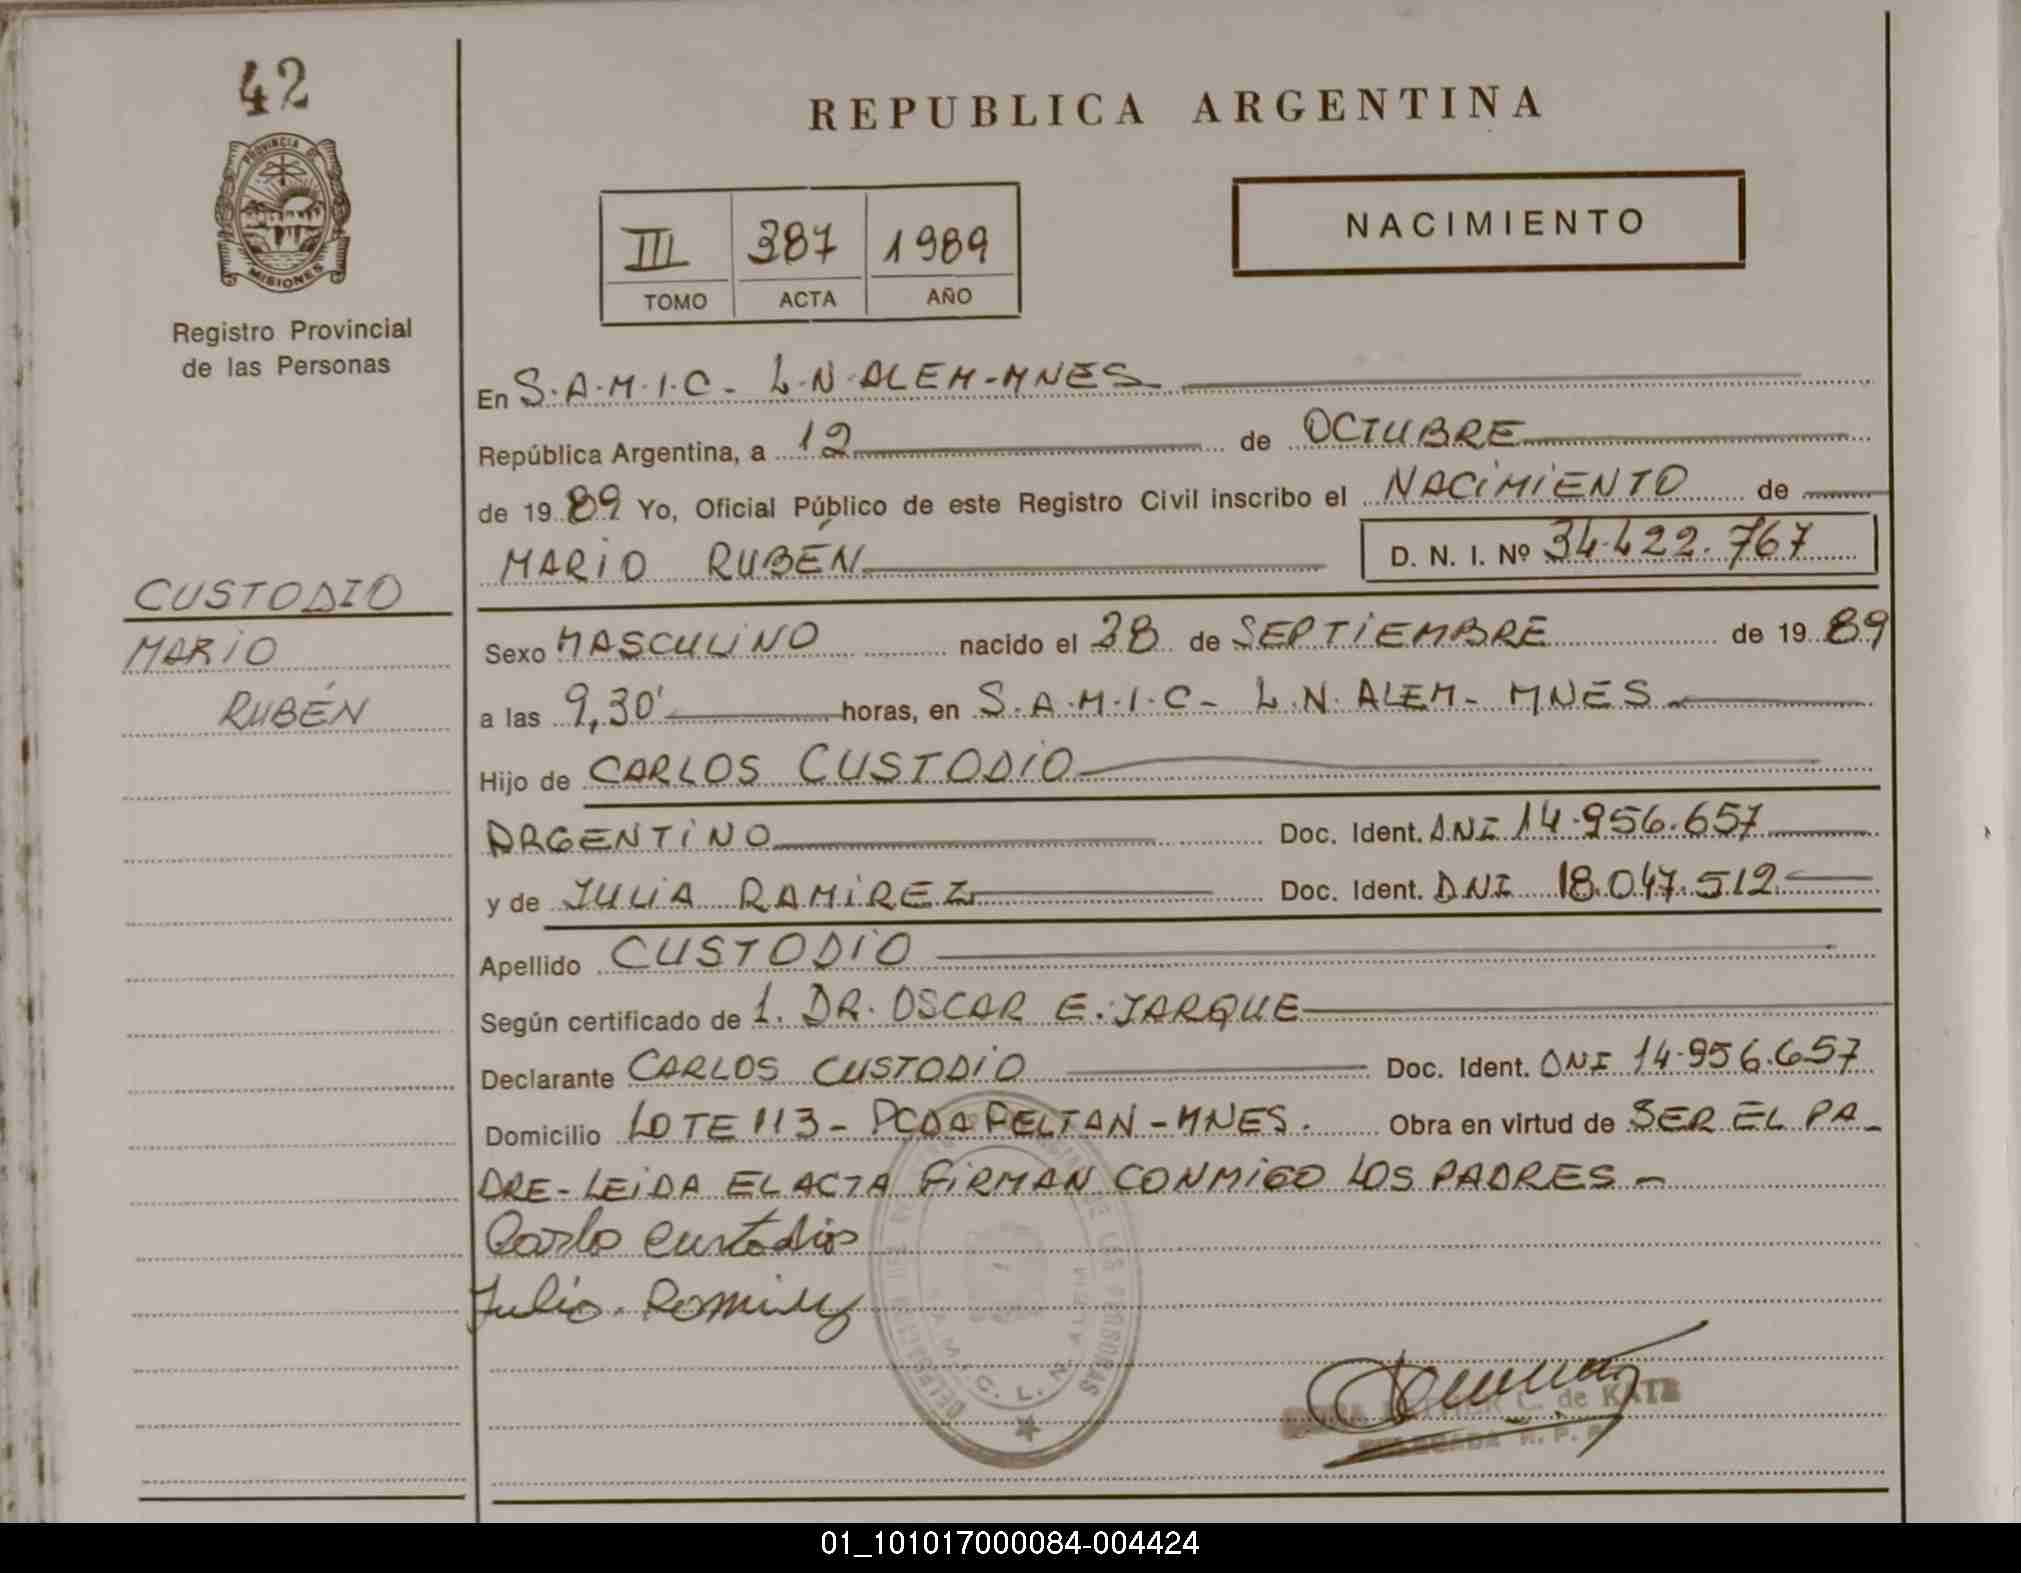 42
PROVINCIA DE
MISIONES
Registro Provincial
de las Personas
CUSTODIO
MARIO
RUBÉN
REPUBLICA ARGENTINA
III 387 1989
TOMO ACTA AÑO
NACIMIENTO
En S.A.M.I.C- L.N.ALEM-MNES
República Argentina, a 12 de OCTUBRE
de 1989 Yo, Oficial Público de este Registro Civil inscribo el NACIMIENTO de
MARIO RUBÉN D. N. I. Nº 34.422.767
Sexo MASCULINO nacido el 28 de SEPTIEMBRE de 1989
a las 9,30' horas, en S.A.M.I.C- L.N.ALEM- MNES
Hijo de CARLOS CUSTODIO
ARGENTINO Doc. Ident. DNI 14.956.657
y de JULIA RAMIREZ Doc. Ident. DNI 18.047.512
Apellido CUSTODIO
Según certificado de 1. DR. OSCAR E. JARQUE
Declarante CARLOS CUSTODIO Doc. Ident. DNI 14.956.657
Domicilio LOTE 113- PCDA PELTAN-MNES. Obra en virtud de SER EL PA-
DRE-LEIDA EL ACTA FIRMAN CONMIGO LOS PADRES-
Carlo Custodio
Julia Ramirez
S.A.M.I.C. L. N. ALEM
C. de KATZ
DELEGADA R. P. P.
01_101017000084-004424